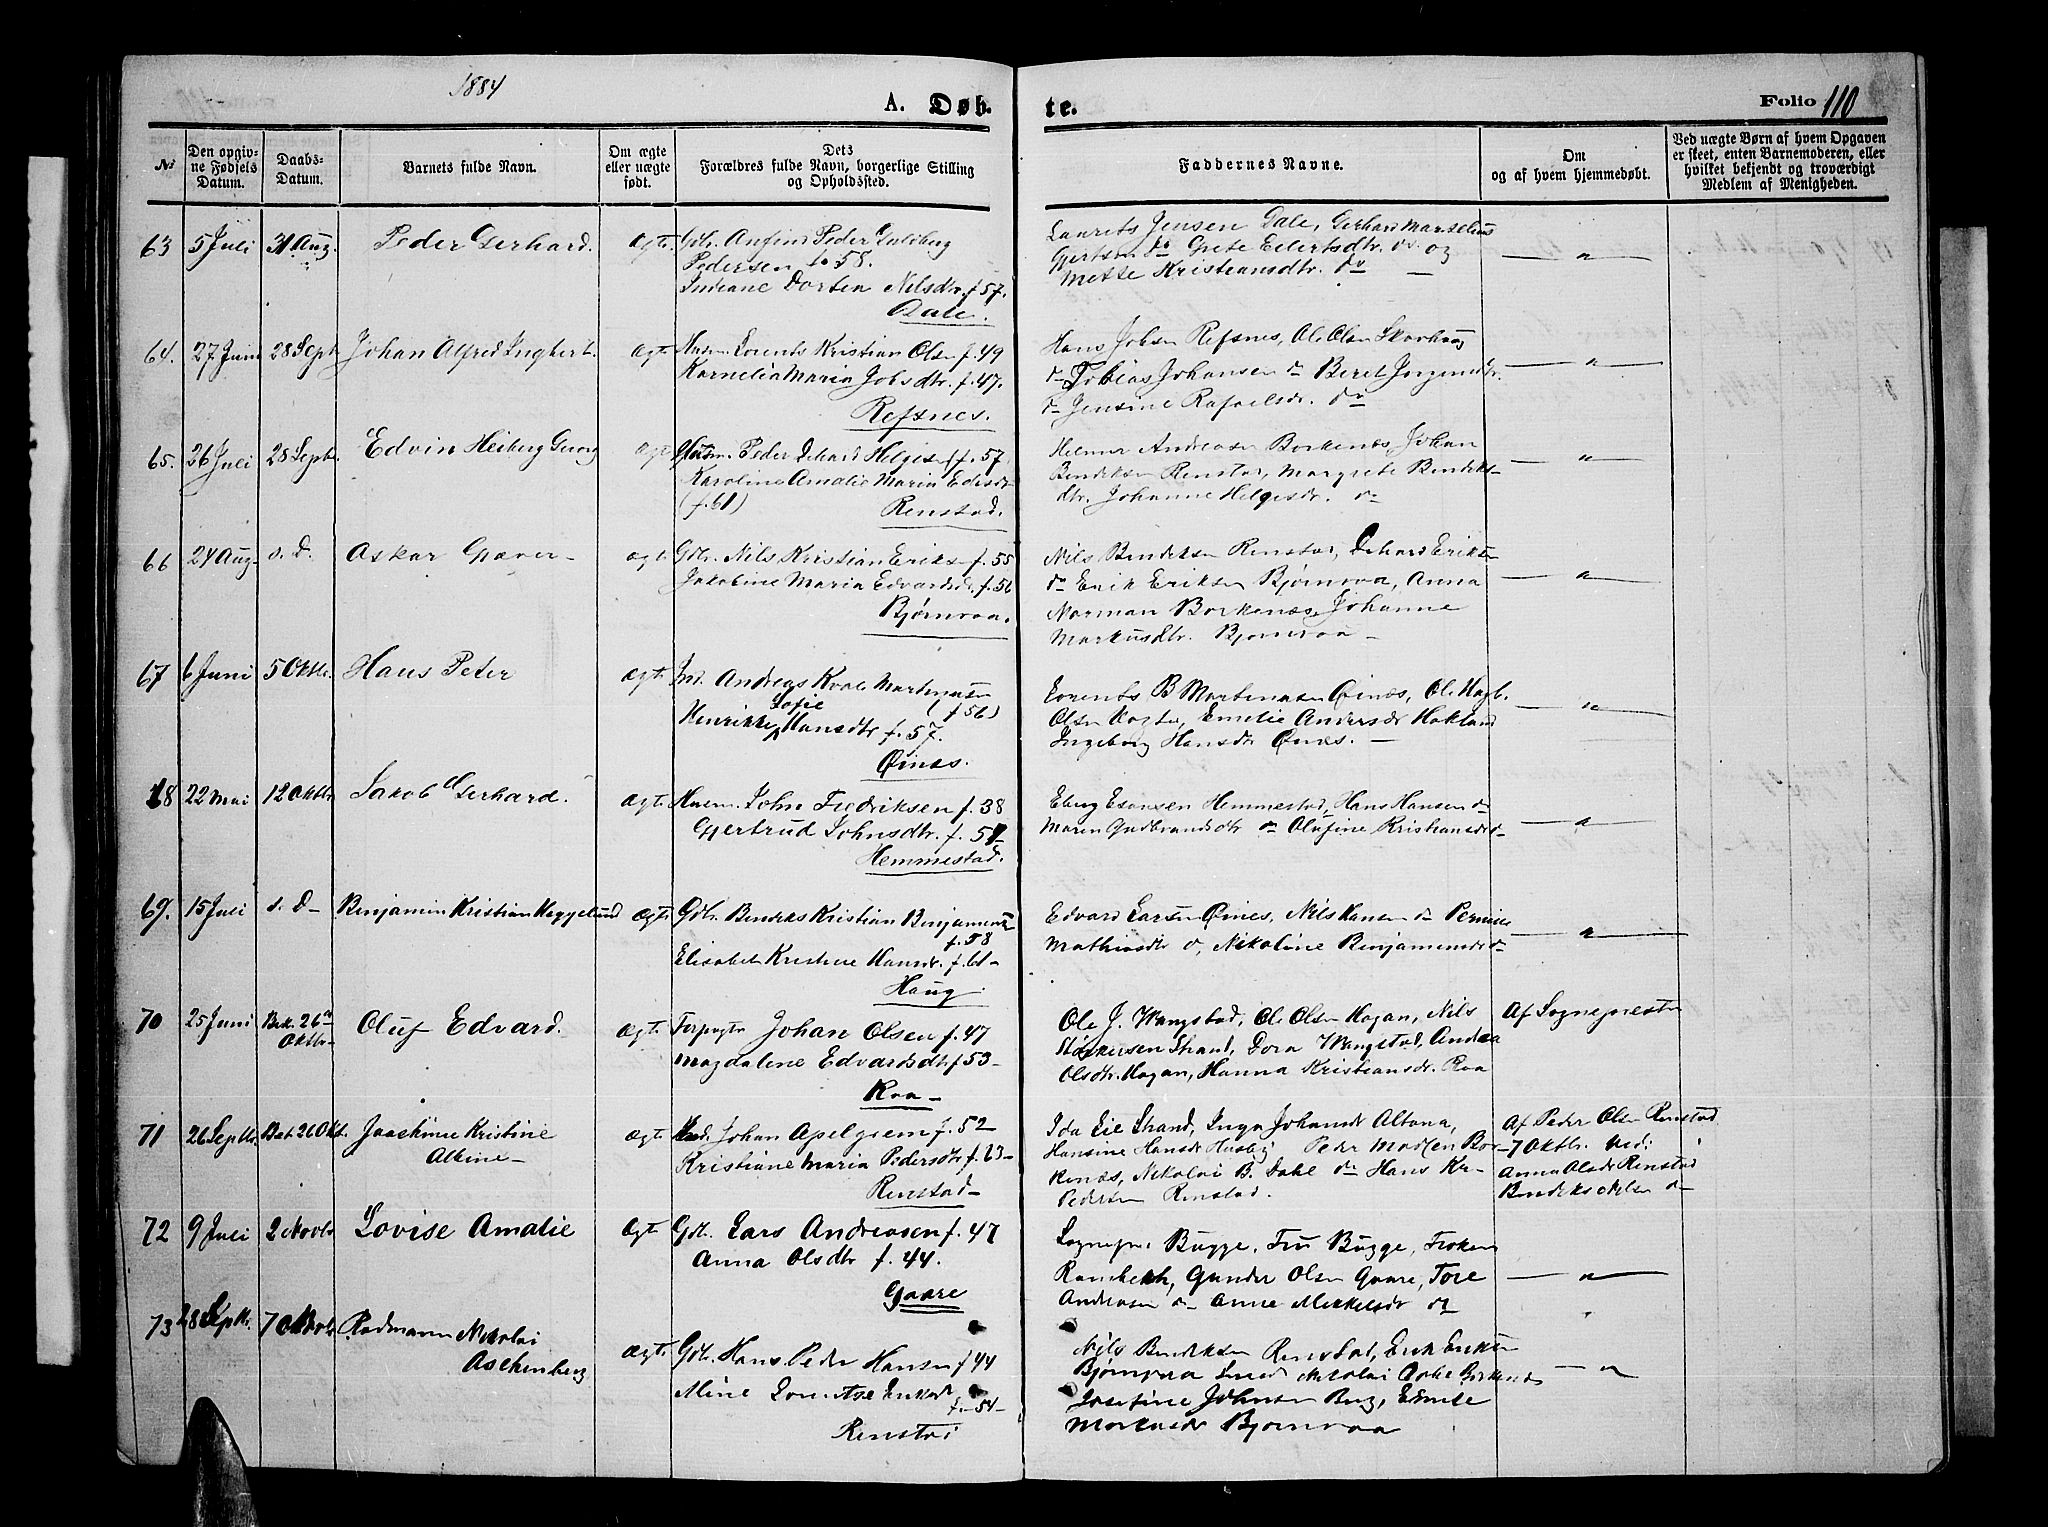 1884
A. Døb-
te.
Folio 110
No
Den opgiv-
ne Fødsels
Datum.
Daabs-
Datum.
Barnets fulde Navn.
Om ægte
eller uægte
født.
Dets
Forældres fulde Navn, borgerlige Stilling
og Opholdssted.
Faddernes Navne.
Om
og af hvem hjemmedøbt.
Ved uægte Børn af hvem Opgaven
er skeet, enten Barnemoderen, eller
hvilket bekjendt og troværdigt
Medlem af Menigheden.
63 5 Juli 31 Aug. Peder Gerhard. ægte Gdbr. Anfind Peder
Pedersen f. 58.
Indiane Dortea Nilsdtr. f 57.
Dale.
Laurits Jensen Dale, Gerhard Marselius
Gjertsen do Grete Eilertsdtr. do og
Mette Kristiansdtr. do — „ —
64. 27 Juni 28 Sept Johan Alfred Ingbert. ægte Lorents Kristian Olsen f. 49
Kornelia Maria Jobsdtr. f. 47.
Refsnes.
Hans Jobsen Refsnes, Ole Olsen Skarhaug
do Tobias Johansen do Beret Jørgensdtr. — „ —
do Jensine Rafaelsdr. do
65. 26 Juli 28 Septb. Edvin Heiberg Georg ægte Peder Edvard Helgesen f. 57
Karoline Amalie Maria Edisdr
(f. 61) Renstad.
Helmer Andreasen Borkenæs, Johan
Bendiksen Renstad, Margrete Bendiks- — „ —
dtr. Johanne Helgesdr. do
66 24 Aug. s. D. Askar Gæver — ægte Gdbr. Nils Kristian Eriksen f. 55
Jakobine Maria Edvardsdr. f. 56
Bjørnraa.
Nils Bendiksen Renstad, Edvard Eriksen
do Erik Eriksen Bjørnraa, Anna — „ —
Norman Borkenæs, Johanne
Markusdtr. Bjørnraa —
67 6 Juni 5 Oktbr. Hans Peter ægte Ind. Andreas Kvale Martinussen
(f 56)
Henrikke Sofie Hansdtr f. 57.
Øinæs.
Lorents B Martinusen Øinæs, Ole Hagb.
Olsen Emelie Andersdr Hokland — „ —
Ingeborg Hansdtr Øinæs. —
68 22 Mai 12 Oktbr Jakob Gerhard. ægte John Fredriksen f. 38
Gjertrud Johnsdtr. f. 51
Hemmestad.
Eberg Esensen Hemmestad, Hans Hansen do
Maren Gudbrandsdtr do Olufine Kristiansdr do — „ —
69. 15 Juli s. D — Benjamin Kristian Heggelund ægte Gdbr. Bendiks Kristian Benjaminsen
f. 58
Elisabet Kristine Hansdr. f. 61 —
Haug.
Edvard Larsen Øines, Nils Hansen do Pernille
Mathiasdtr do, Nikoline Benjaminsdr do — „ —
70 25 Juni Bek. 26 Oktbr — Oluf Edvard. ægte Forpagter Johan Olsen f. 47
Magdalene Edvardsdtr f 53 —
Roa —
Ole J. Wangstad, Ole Olsen Hagan, Nils
Størkersen Strand, Dora Wangstad, Andrea
Olsdtr. Hagan, Hanna Kristiansdr. Roa
Af Sognepresten
71 26 Septbr. Bek. 26 Okt. Joachime Kristine
Alkine —
ægte Ind. Johan Apelgren f. 52
Kristiane Maria Pedersdtr f. 63 —
Renstad —
Ida Lie Strand, Inga Johansdr Altona,
Hansine Hansdr Husby Peder Madsen Bor-
kenæs, Nikolai B. Dahl do Hans Kr.
Pedersen Renstad.
Af Peder Olsen Renstad
7 Oktbr. Ved:
Anna Olsdr Renstad
Bendiks Nilsen do —
72 9 Juli 2 Novbr Lovise Amalie ægte Gdb. Lars Andreasen f. 47
Anna Olsdtr f. 44.
Gaare
Sognepr. Bugge, Fru Bugge, Frøken
Rambech, Gunder Olsen Gaare, Tore — „ —
Andreasen do Anne Mikkelsdr do
73 28 Septbr. 7 Rodmann Nikolai
Aschenberg
ægte Gdbr. Hans Peder Hansen f 44
Mine Lovise Eriksdr
f. 54 —
Renstad
Nils Bendiksen Renstad, Erik Eriksen
Bjørnraa Nikolai — „
Josefine Johnsen Emelie
Markusdr Bjørnraa